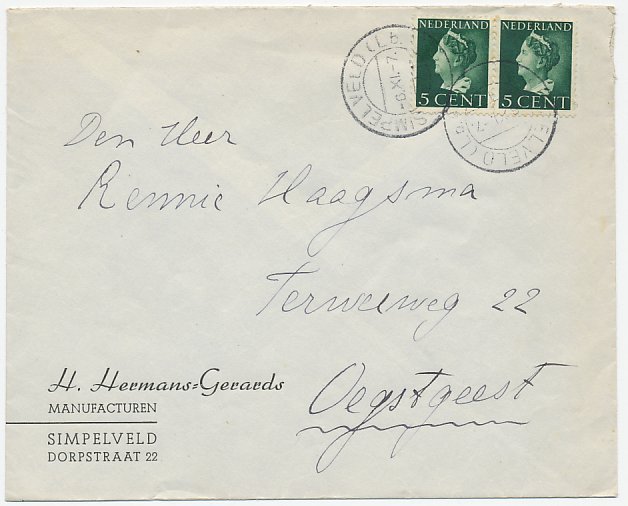 NEDERLAND NEDERLAND
5 CENT 5 CENT
SIMPELVELD (L
Den Heer
Rennie Haagsma
Terweeweg 22
Oegstgeest
H. Hermans=Gerards
MANUFACTUREN
SIMPELVELD
DORPSTRAAT 22